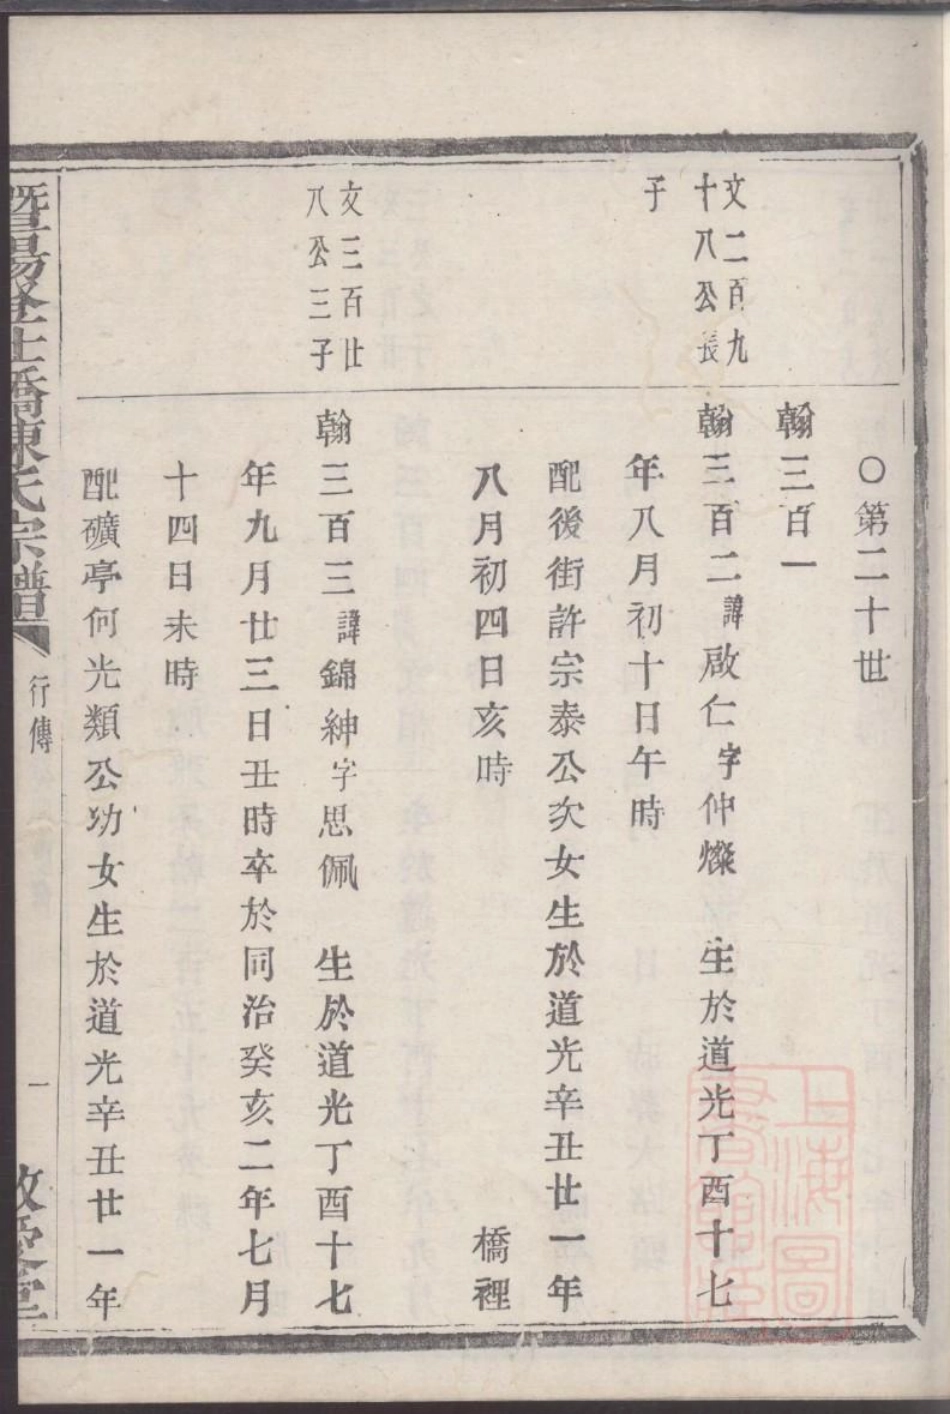 ○第二十世
翰三百一
文二百九
十八公長
子
翰三百二諱啟仁字仲燦 生於道光丁酉十七
年八月初十日午時
配後街許宗泰公次女生於道光辛丑廿一年
八月初四日亥時 橋裡
文三百廿
八公三子
翰三百三諱錦紳字思佩 生於道光丁酉十七
年九月廿三日丑時卒於同治癸亥二年七月
十四日未時
配礦亭何光類公幼女生於道光辛丑廿一年
暨陽 橋陳氏宗譜
行傳
一
堂
上海圖
書館藏